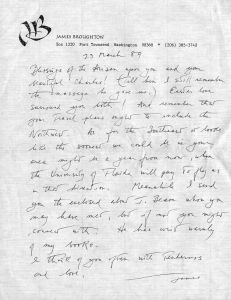 JB
JAMES BROUGHTON
Box 1330 Port Townsend Washington 98368 • (206) 385-3742
23 March 89
Blessings of the Season upon you and your
beautiful Charles! (Tell him I still remember
the massage he gave me.) Easter love
surround you both! And remember that
your travel plans might to include the
Northwest. As for the Southeast it looks
like the soonest we could be in your
area might be a year from now, when
the University of Florida will pay to fly us
in that direction. Meanwhile I send
you the enclosed about J. whom you
may have met, but if not you might
connect with. He has written
of my books.
I think of you often with tenderness
and love.
James